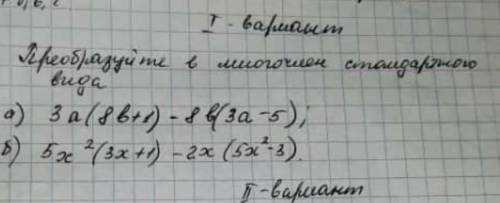 I - вариант
Преобразуйте в многочлен стандартного
вида
а) 3a(8b+1) - 8b(3a-5);
б) 5x²(3x+1) - 2x(5x²-3).
II - вариант